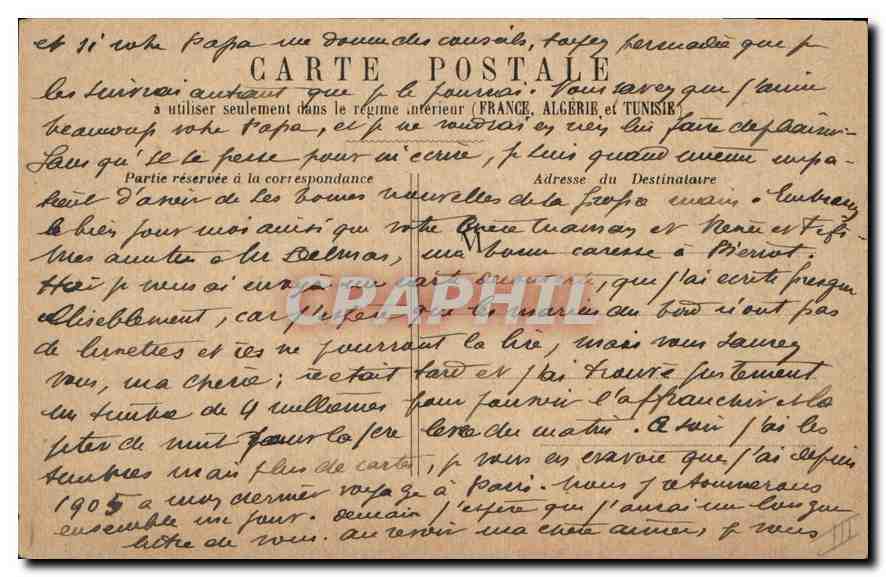 et si votre Papa me donne des conseils, soyez persuadée que je
CARTE POSTALE
les suivrai autant que je le pourrai. Vous savez que j'aime
à utiliser seulement dans le régime intérieur (FRANCE, ALGÉRIE et TUNISIE)
beaucoup votre Papa, et je ne voudrais en rien lui faire de
Sans qu'il se presse pour m'écrire, je suis quand même impa-
Partie réservée à la correspondance
Adresse du Destinataire
tient d'avoir de ses bonnes nouvelles de la propre main. Embrassez
le bien pour moi ainsi que votre chère maman et Renée et
M
mes amitiés à Delmas, ma bonne caresse à Pierrot.
Hier je vous ai envoyé une carte que j'ai écrite presque
illisiblement, car j'espère que les marins du bord n'ont pas
CRAPHIL
de lunettes et ils ne pourront la lire, mais vous saurez
vous, ma chérie; c'était tard et j'ai trouvé justement
un timbre de 4 millièmes pour pouvoir l'affranchir et la
jeter de nuit pour la levée du matin. Ce soir j'ai les
timbres mais plus de cartes, je vous en envoie que j'ai depuis
1905 à mon dernier voyage à Paris. Nous y retournerons
ensemble un jour. Demain j'espère que j'aurai une longue
lettre de vous. au revoir ma chère aimée, je vous
III